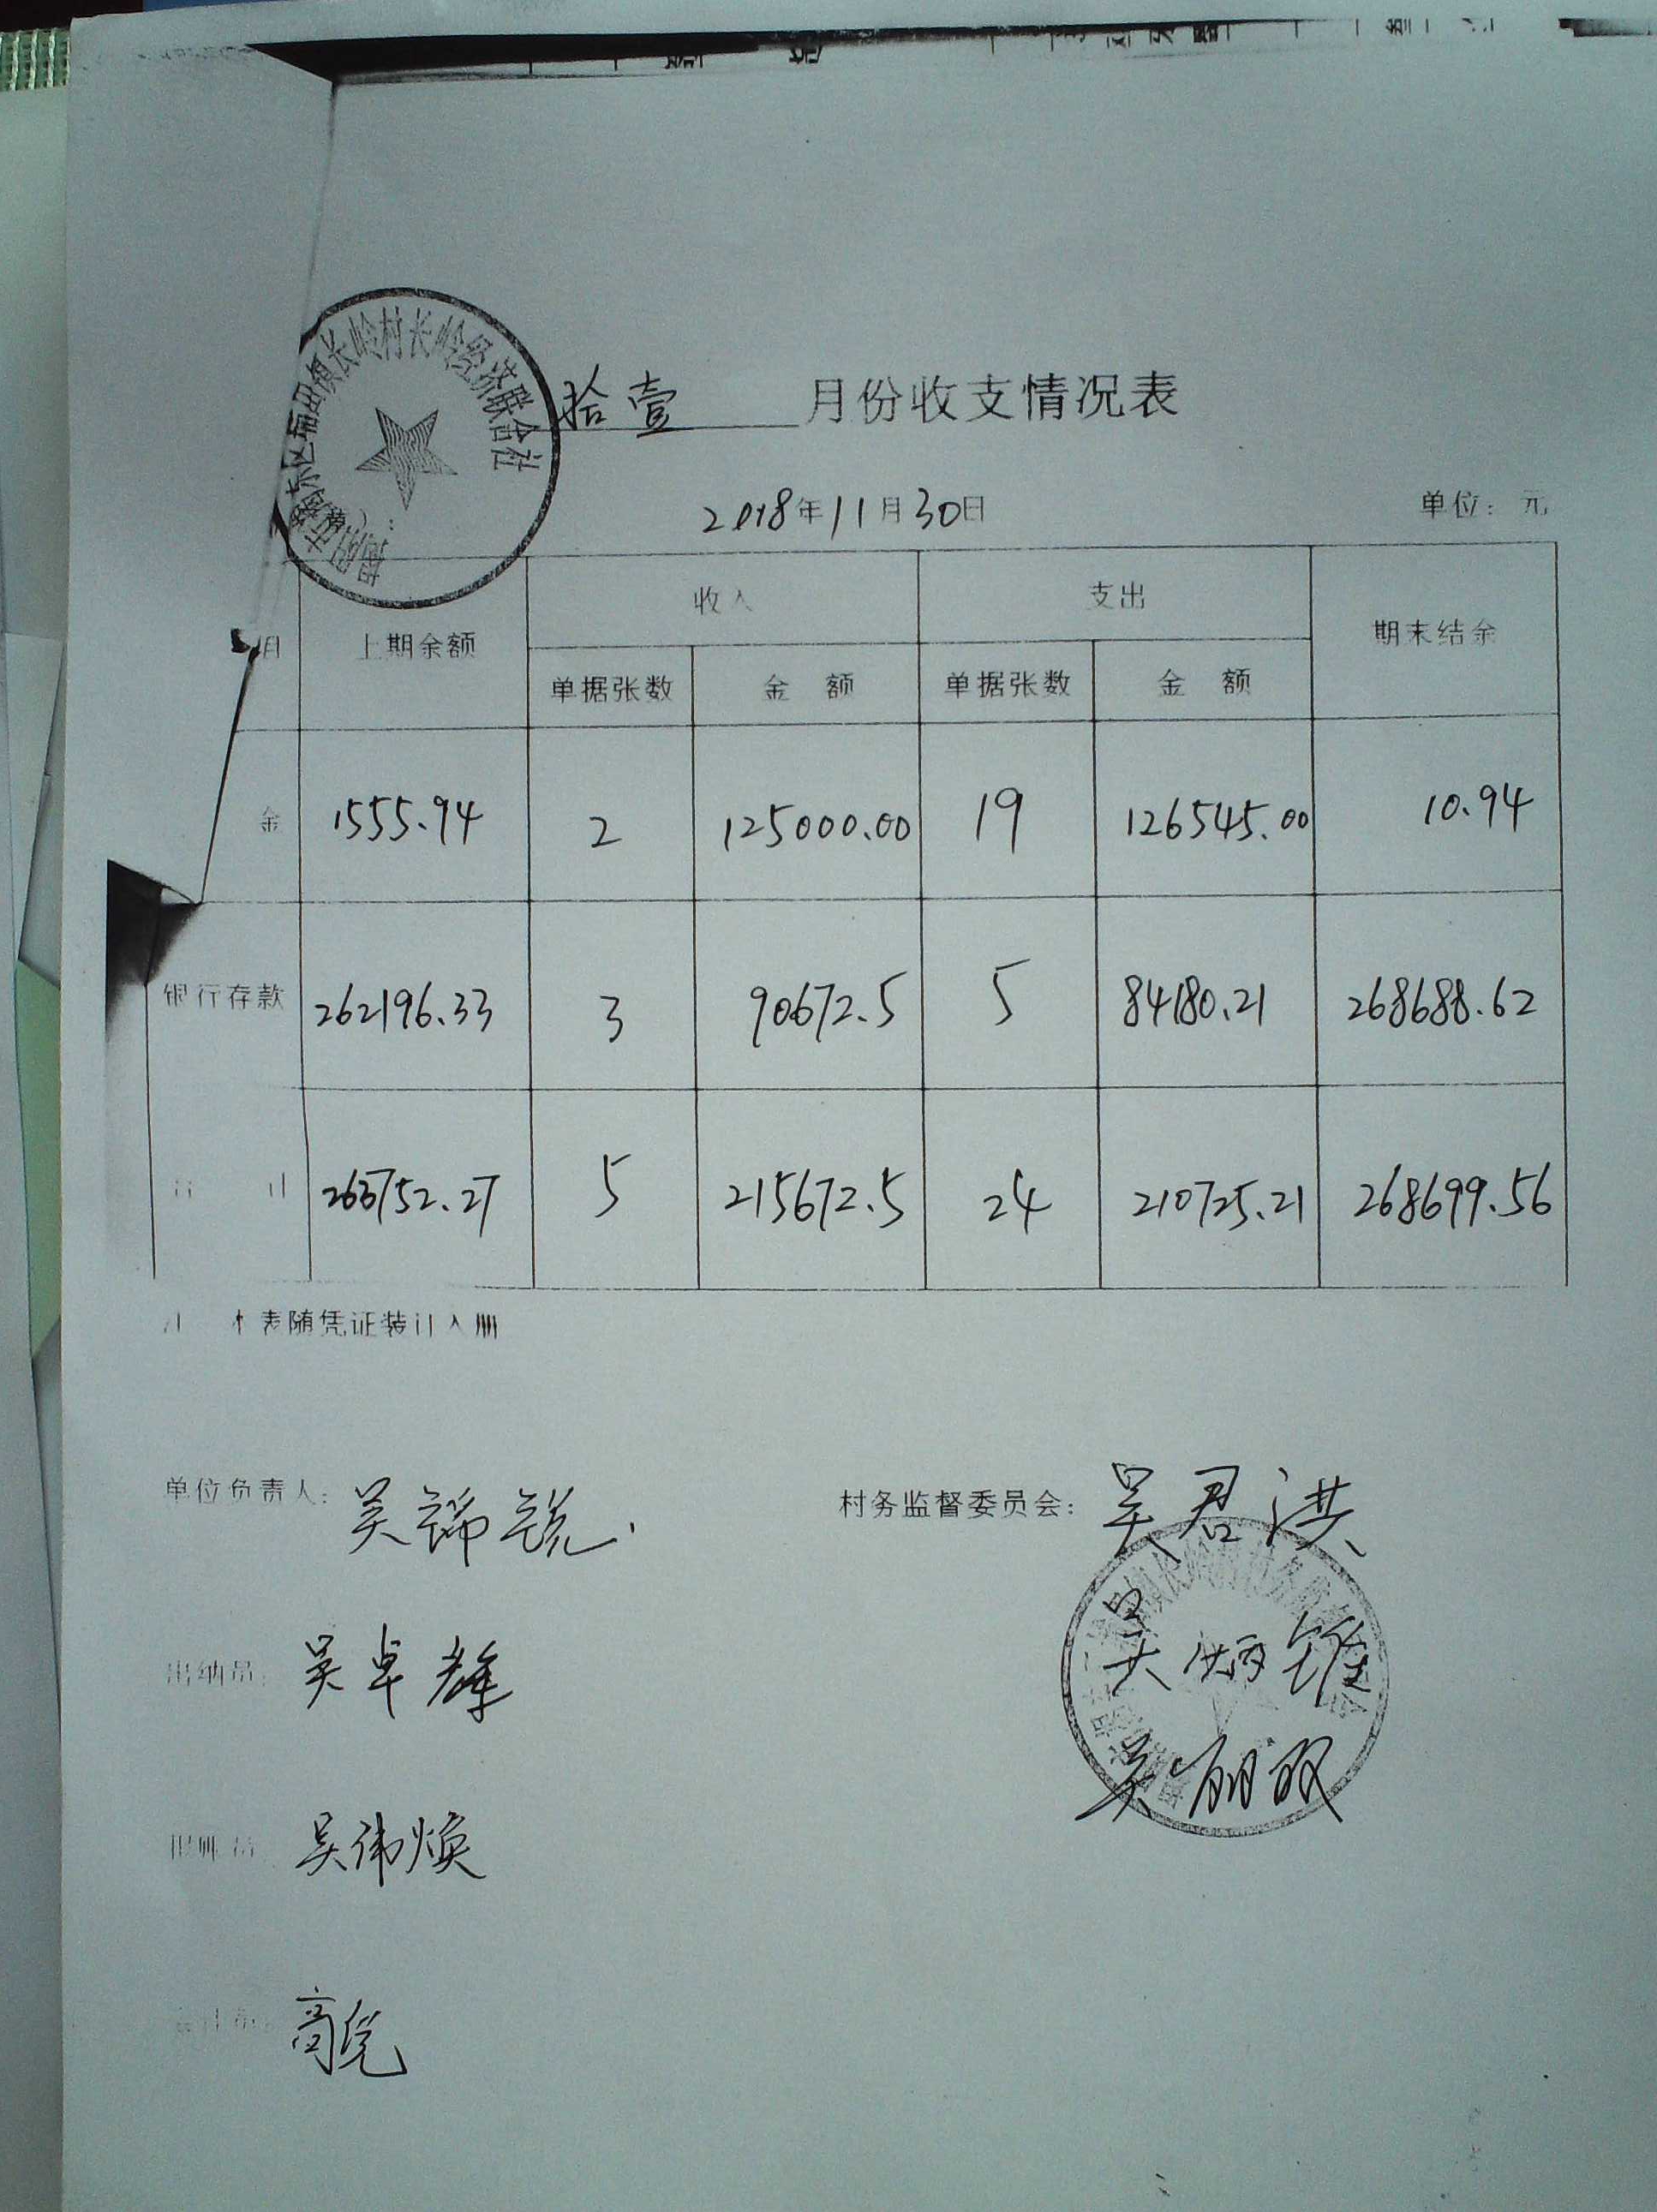 揭阳市揭东区埔田镇长岭村长岭经济联合社
拾壹 月份收支情况表
2018年11月30日 单位：元
目 上期余额 收入 支出 期末结余
单据张数 金 额 单据张数 金 额
金 1555.94 2 125000.00 19 126545.00 10.94
银行存款 262196.33 3 90672.5 5 84180.21 268688.62
合 计 263752.27 5 215672.5 24 210725.21 268699.56
本表随凭证装订入册
单位负责人： 吴锦锐 村务监督委员会： 吴君洪
吴炳锥
出纳员： 吴卓
吴丽双
报账员 吴伟焕